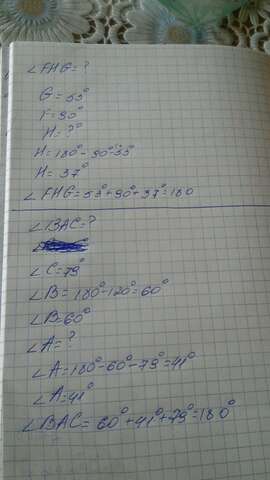 ∠FHG = ?
G = 53°
F = 90°
H = ?°
H = 180° - 90° - 53°
H = 37°
∠FHG = 53° + 90° + 37° = 180
∠BAC = ?
∠C = 79°
∠B = 180° - 120° = 60°
∠B = 60°
∠A = ?
∠A = 180° - 60° - 79° = 41°
∠A = 41°
∠BAC = 60° + 41° + 79° = 180°